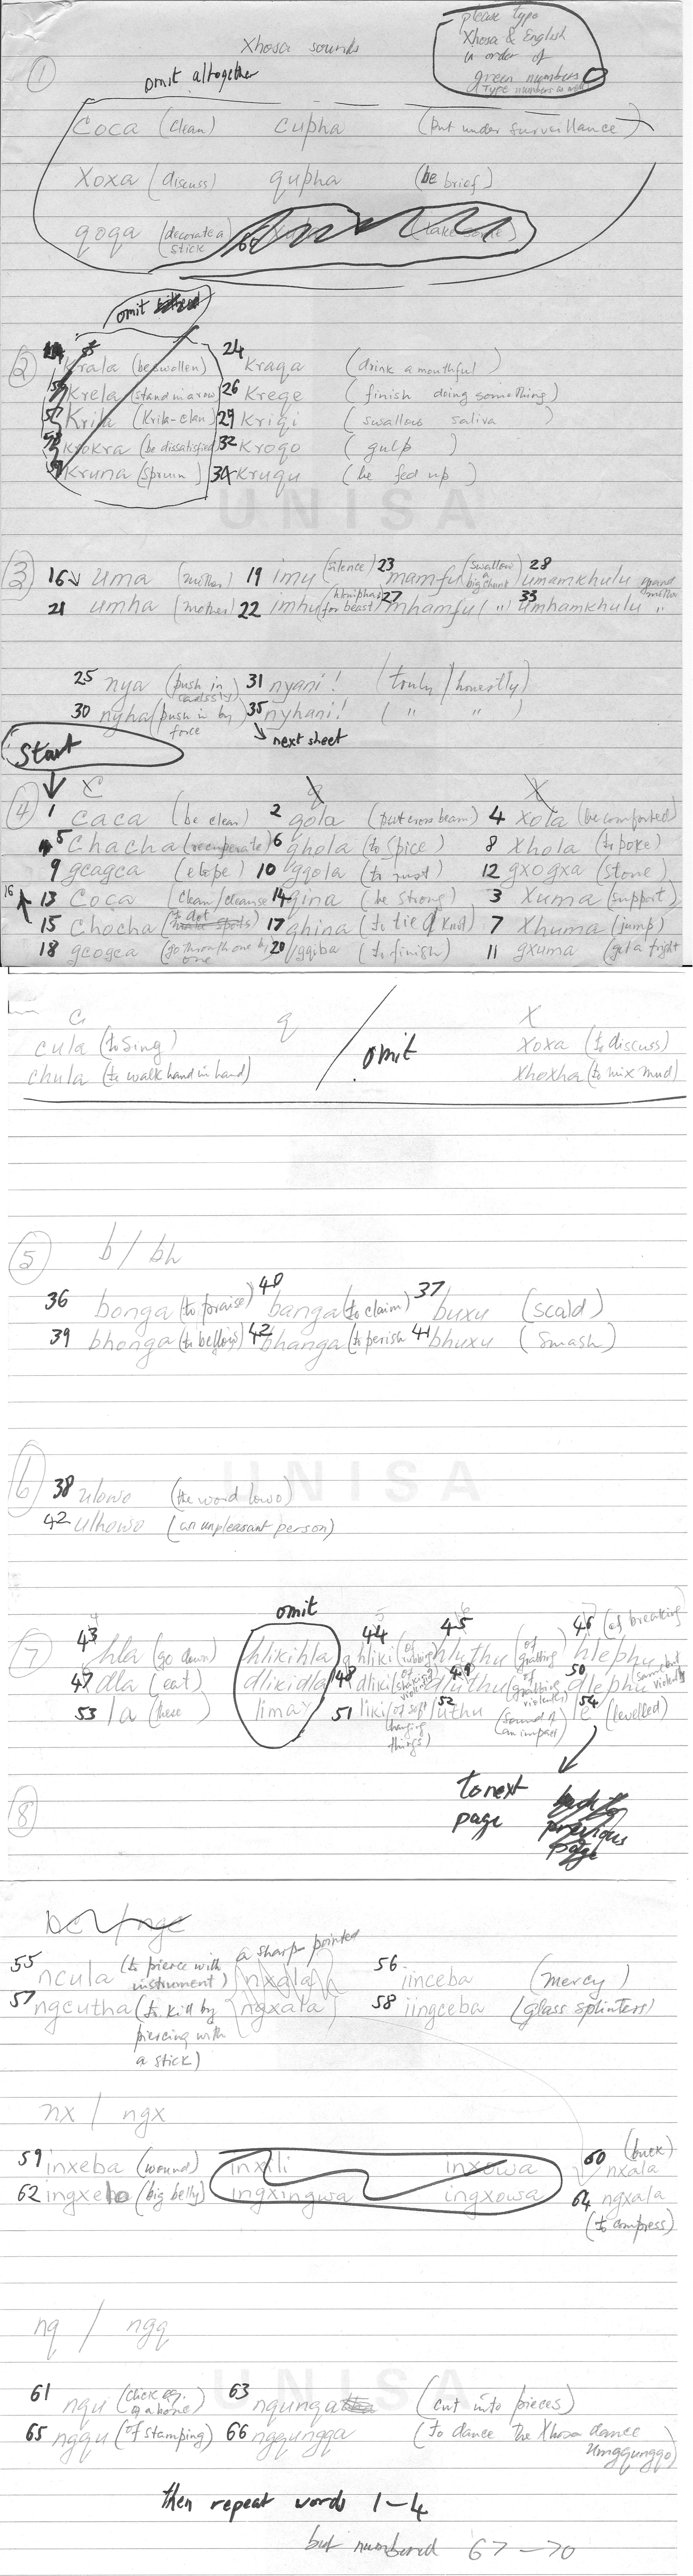 please type
Xhosa & English
in order of
green numbers
(Type numbers as well)
Xhosa sounds
①
omit altogether
Coca (clean) cupha (put under surveillance)
Xoxa (discuss) qupha (be brief)
qoqa (decorate a stick
omit
② Krala (be swollen) 24 Kraqa (drink a mouthful)
Krela (stand in a row) 26 Kreqe (finish doing something)
Krila (Krila-clan) 29 Kriqi (swallow saliva)
Krokra (be dissatisfied) 32 Kroqo (gulp)
Kruna (Sprain) 34 Kruqu (be fed up)
UNISA
③ 16 uma (mother) 19 imu (silence) 23 mamfu (swallow a big chunk) 28 umamkhulu grand mother
21 umha (mother) 22 imhu (hlonipha for beast) 27 mhamfu ( " ) 33 umhamkhulu "
25 nya (push in carelessly) 31 nyani! (truly/honestly)
30 nyha (push in by force 35 nyhani! ( " " )
next sheet
Start
C q X
④ 1 Caca (be clear) 2 qola (put cross beam) 4 Xola (be comforted)
5 Chacha (recuperate) 6 qhola (to spice) 8 Xhola (to poke)
9 gcagca (elope) 10 gqola (to rust) 12 gxogxa (stone)
16 13 Coca (clean/cleanse 14 qina (be strong) 3 Xuma (support)
15 Chocha (to dot) 17 qhina (to tie a knot) 7 Xhuma (jump)
18 gcogca (go through one by one 20 gqiba (to finish) 11 gxuma (get a fright
C q X
cula (to sing) omit xoxa (to discuss)
chula (to walk hand in hand) xhoxha (to mix mud)
⑤ b / bh
36 bonga (to praise) 40 banga (to claim) 37 buxu (scald)
39 bhonga (to bellow) 42 bhanga (to perish 41 bhuxu (smash)
UNISA
⑥ 38 ulowo (the word lowo)
42 ulhowo (an unpleasant person)
omit
⑦ 43 hla (go down) hlikihla 44 hliki (of rubbing) 45 hluthu (of grabbing 46 hlephu (of breaking)
47 dla (eat) dlikidla 48 dliki (of shaking violently) 49 dluthu (of grabbing violently) 50 dlephu same but violently
53 la (these) lima 51 liki (of soft hanging things) 52 luthu (sound of an impact 54 le (levelled)
to next
page
back to
previous
page
⑧
nc/ngc
55 ncula (to pierce with a sharp pointed instrument) (nxala) 56 iinceba (mercy)
57 ngcutha (to kill by piercing with a stick) (ngxala) 58 iingceba (glass splinters)
nx / ngx
59 inxeba (wound) inxili inxowa 60 nxala (buck)
62 ingxebo (big belly) ingxingwa ingxowa 64 ngxala (to compress)
nq / ngq
UNISA
61 nqu (click eg. of a bone) 63 nqunqa (cut into pieces)
65 ngqu (of stamping) 66 ngqungqa (to dance the Xhosa dance
Umgqungqo)
then repeat words 1-4
but numbered 67-70